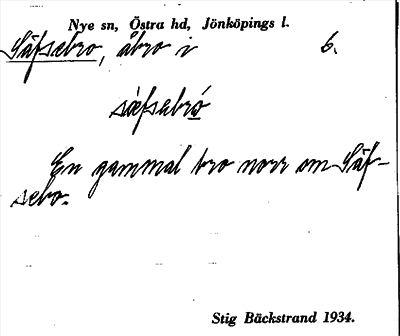 Nye sn, Östra hd, Jönköpings l.
Säfsebro, åbro i 6.
säfsebro̱
En gammal bro norr om Säf-
sebo.
Stig Bäckstrand 1934.